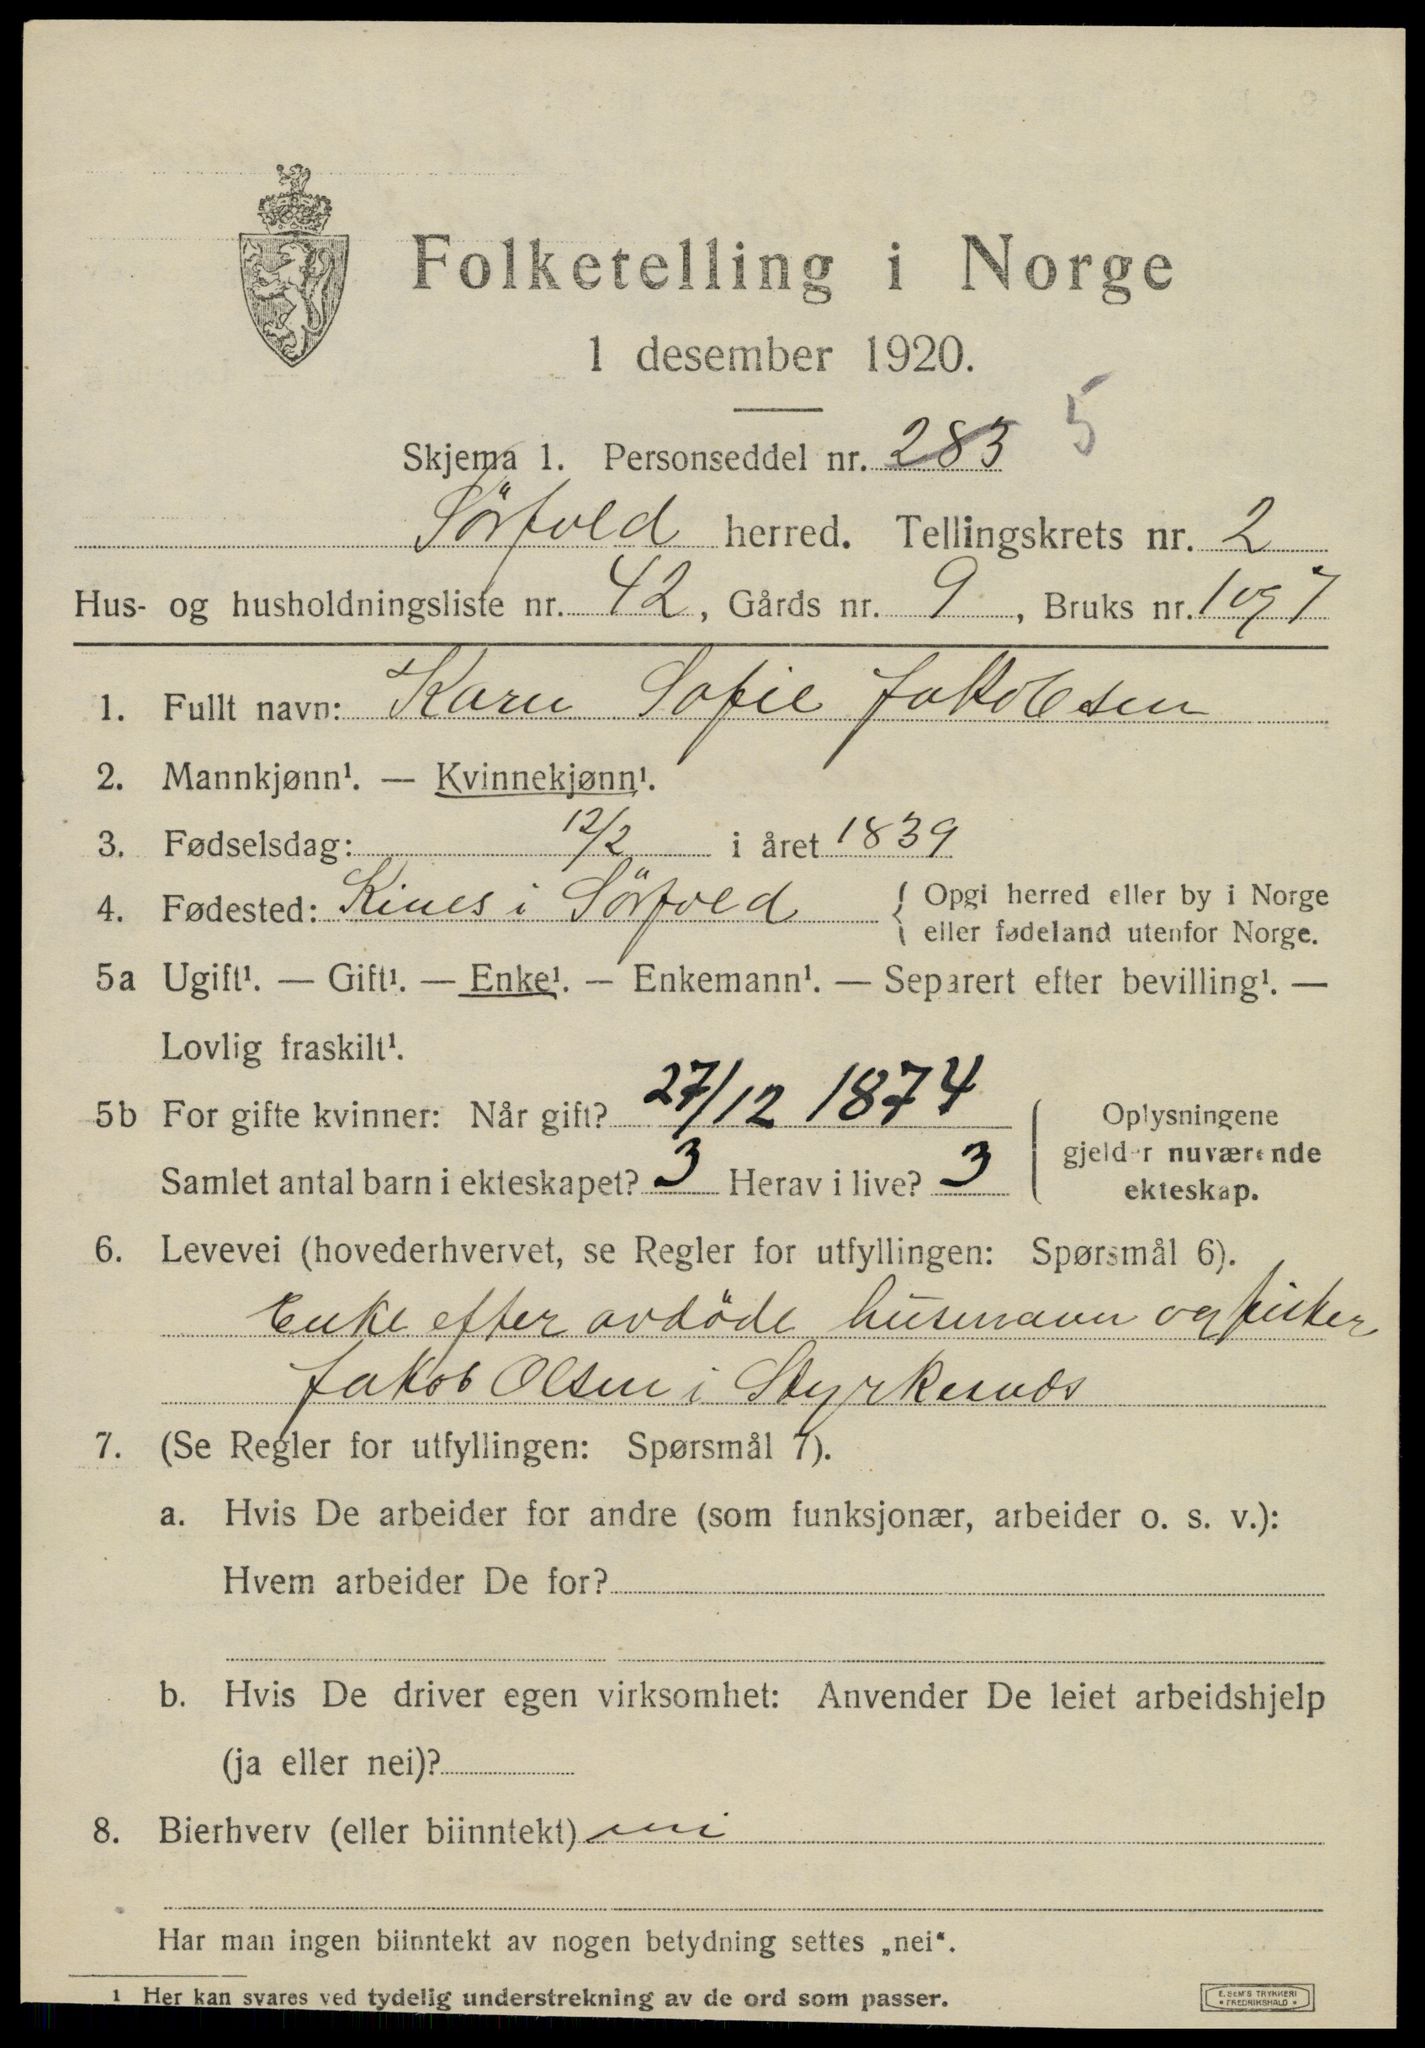 Folketelling i Norge
1 desember 1920.
Skjema 1. Personseddel nr. 283 5
Sörfold herred. Tellingskrets nr. 2
Hus- og husholdningsliste nr. 42, Gårds nr. 9, Bruks nr. 1 og 7
1. Fullt navn: Karen Sofie Jakobsen
2. Mannkjønn¹. — Kvinnekjønn¹.
3. Fødselsdag: 12/2 i året 1839
4. Fødested: Kines i Sörfold { Opgi herred eller by i Norge
eller fødeland utenfor Norge.
5a Ugift¹. — Gift¹. — Enke¹. — Enkemann¹. — Separert efter bevilling¹. —
Lovlig fraskilt¹.
5b For gifte kvinner: Når gift? 27/12 1874
Samlet antal barn i ekteskapet? 3 Herav i live? 3
Oplysningene
gjelder nuværende
ekteskap.
6. Levevei (hovederhvervet, se Regler for utfyllingen: Spørsmål 6).
Enke efter avdöde husmann og fisker
Jakob Olsen i Styrkesnes
7. (Se Regler for utfyllingen: Spørsmål 7).
a. Hvis De arbeider for andre (som funksjonær, arbeider o. s. v.):
Hvem arbeider De for?
b. Hvis De driver egen virksomhet: Anvender De leiet arbeidshjelp
(ja eller nei)?
8. Bierhverv (eller biinntekt) nei
Har man ingen biinntekt av nogen betydning settes „nei“.
1 Her kan svares ved tydelig understrekning av de ord som passer.
E. SEM'S TRYKKERI
• FREDRIKSHALD •